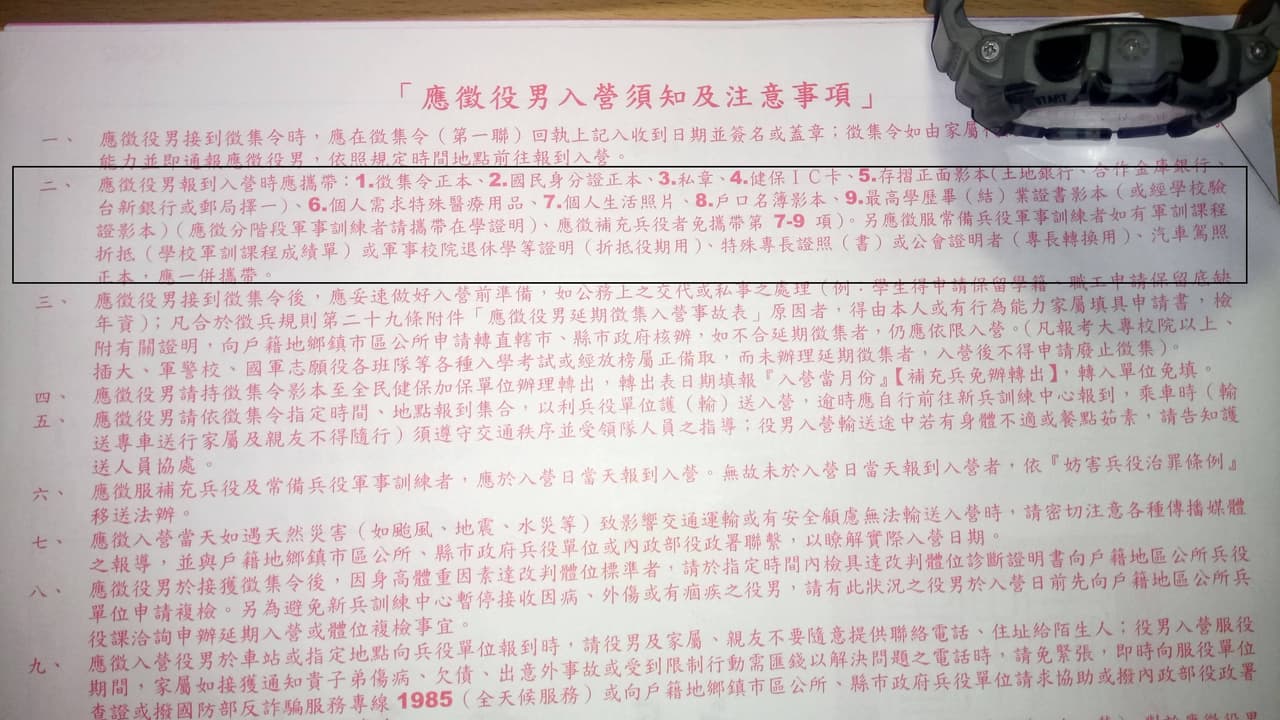 「應徵役男入營須知及注意事項」
一、 應徵役男接到徵集令時，應在徵集令（第一聯）回執上記入收到日期並簽名或蓋章；徵集令如由家屬
能力並即通報應徵役男，依照規定時間地點前往報到入營。
二、 應徵役男報到入營時應攜帶：1.徵集令正本、2.國民身分證正本、3.私章、4.健保ＩＣ卡、5.存摺正面影本(土地銀行、合作金庫銀行、
台新銀行或郵局擇一)、6.個人需求特殊醫療用品、7.個人生活照片、8.戶口名簿影本、9.最高學歷畢（結）業證書影本（或經學校驗
證影本）(應徵分階段軍事訓練者請攜帶在學證明)、應徵補充兵役者免攜帶第 7-9 項)。另應徵服常備兵役軍事訓練者如有軍訓課程
折抵（學校軍訓課程成績單）或軍事校院退休學等證明（折抵役期用)、特殊專長證照（書）或公會證明者（專長轉換用)、汽車駕照
正本，應一併攜帶。
三、 應徵役男接到徵集令後，應妥速做好入營前準備，如公務上之交代或私事之處理（例：學生得申請保留學籍、職工申請保留底缺
年資)；凡合於徵兵規則第二十九條附件「應徵役男延期徵集入營事故表」原因者，得由本人或有行為能力家屬填具申請書，檢
附有關證明，向戶籍地鄉鎮市區公所申請轉直轄市、縣市政府核辦，如不合延期徵集者，仍應依限入營。（凡報考大專校院以上、
插大、軍警校、國軍志願役各班隊等各種入學考試或經放榜屬正備取，而未辦理延期徵集者，入營後不得申請廢止徵集）。
四、 應徵役男請持徵集令影本至全民健保加保單位辦理轉出，轉出表日期填報『入營當月份』【補充兵免辦轉出】，轉入單位免填。
五、 應徵役男請依徵集令指定時間、地點報到集合，以利兵役單位護（輸）送入營，逾時應自行前往新兵訓練中心報到，乘車時（輸
送專車送行家屬及親友不得隨行）須遵守交通秩序並受領隊人員之指導；役男入營輸送途中若有身體不適或餐點茹素，請告知護
送人員協處。
六、 應徵服補充兵役及常備兵役軍事訓練者，應於入營日當天報到入營。無故未於入營日當天報到入營者，依『妨害兵役治罪條例』
移送法辦。
七、 應徵入營當天如遇天然災害（如颱風、地震、水災等）致影響交通運輸或有安全顧慮無法輸送入營時，請密切注意各種傳播媒體
之報導，並與戶籍地鄉鎮市區公所、縣市政府兵役單位或內政部役政署聯繫，以瞭解實際入營日期。
八、 應徵役男於接獲徵集令後，因身高體重因素達改判體位標準者，請於指定時間內檢具達改判體位診斷證明書向戶籍地區公所兵役
單位申請複檢。另為避免新兵訓練中心暫停接收因病、外傷或有痼疾之役男，請有此狀況之役男於入營日前先向戶籍地區公所兵
役課洽詢申辦延期入營或體位複檢事宜。
九、 應徵入營役男於車站或指定地點向兵役單位報到時，請役男及家屬、親友不要隨意提供聯絡電話、住址給陌生人；役男入營服役
期間，家屬如接獲通知貴子弟傷病、欠債、出意外事故或受到限制行動需匯錢以解決問題之電話時，請免緊張，即時向服役單位
查證或撥國防部反詐騙服務專線 1985（全天候服務）或向戶籍地鄉鎮市區公所、縣市政府兵役單位請求協助或撥內政部役政署
START